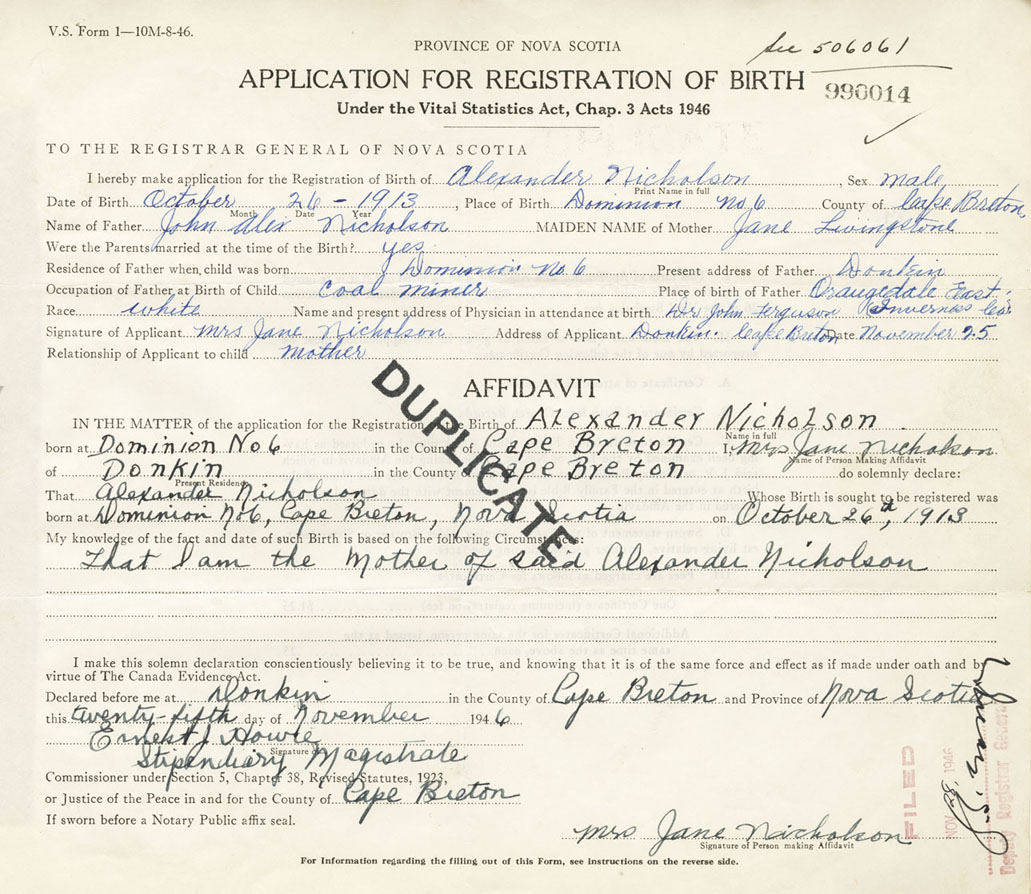 V.S. Form 1—10M-8-46.
See 506061
PROVINCE OF NOVA SCOTIA
APPLICATION FOR REGISTRATION OF BIRTH
990014
Under the Vital Statistics Act, Chap. 3 Acts 1946
TO THE REGISTRAR GENERAL OF NOVA SCOTIA
I hereby make application for the Registration of Birth of Alexander Nicholson, Sex male
Print Name in full
Date of Birth October 26 - 1913, Place of Birth Dominion No.6 County of Cape Breton
Month Date Year
Name of Father John Alex Nicholson MAIDEN NAME of Mother Jane Livingstone
Were the Parents married at the time of the Birth? yes
Residence of Father when child was born Dominion No.6 Present address of Father Donkin
Occupation of Father at Birth of Child coal miner Place of birth of Father Orangedale East
Race white Name and present address of Physician in attendance at birth Dr John Ferguson Inverness Co
Signature of Applicant Mrs Jane Nicholson Address of Applicant Donkin. Cape Breton Date November 25
Relationship of Applicant to child mother
DUPLICATE
AFFIDAVIT
IN THE MATTER of the application for the Registration of the Birth of Alexander Nicholson
Name in full
born at Dominion No 6 in the County of Cape Breton I, Mrs Jane Nicholson
Name of Person Making Affidavit
of Donkin in the County of Cape Breton do solemnly declare:
Present Residence
That Alexander Nicholson Whose Birth is sought to be registered was
born at Dominion No 6, Cape Breton, Nova Scotia on October 26th, 1913
My knowledge of the fact and date of such Birth is based on the following Circumstances:
That I am the Mother of said Alexander Nicholson
I make this solemn declaration conscientiously believing it to be true, and knowing that it is of the same force and effect as if made under oath and by
virtue of The Canada Evidence Act.
Declared before me at Donkin in the County of Cape Breton and Province of Nova Scotia
this twenty-fifth day of November 1946
Ernest J Howie
Signature of
Stipendiary Magistrate
Commissioner under Section 5, Chapter 38, Revised Statutes, 1923,
or Justice of the Peace in and for the County of Cape Breton
If sworn before a Notary Public affix seal.
FILED
NOV 1946
Deputy Registrar General
Mrs Jane Nicholson
Signature of Person making Affidavit
For Information regarding the filling out of this Form, see instructions on the reverse side.